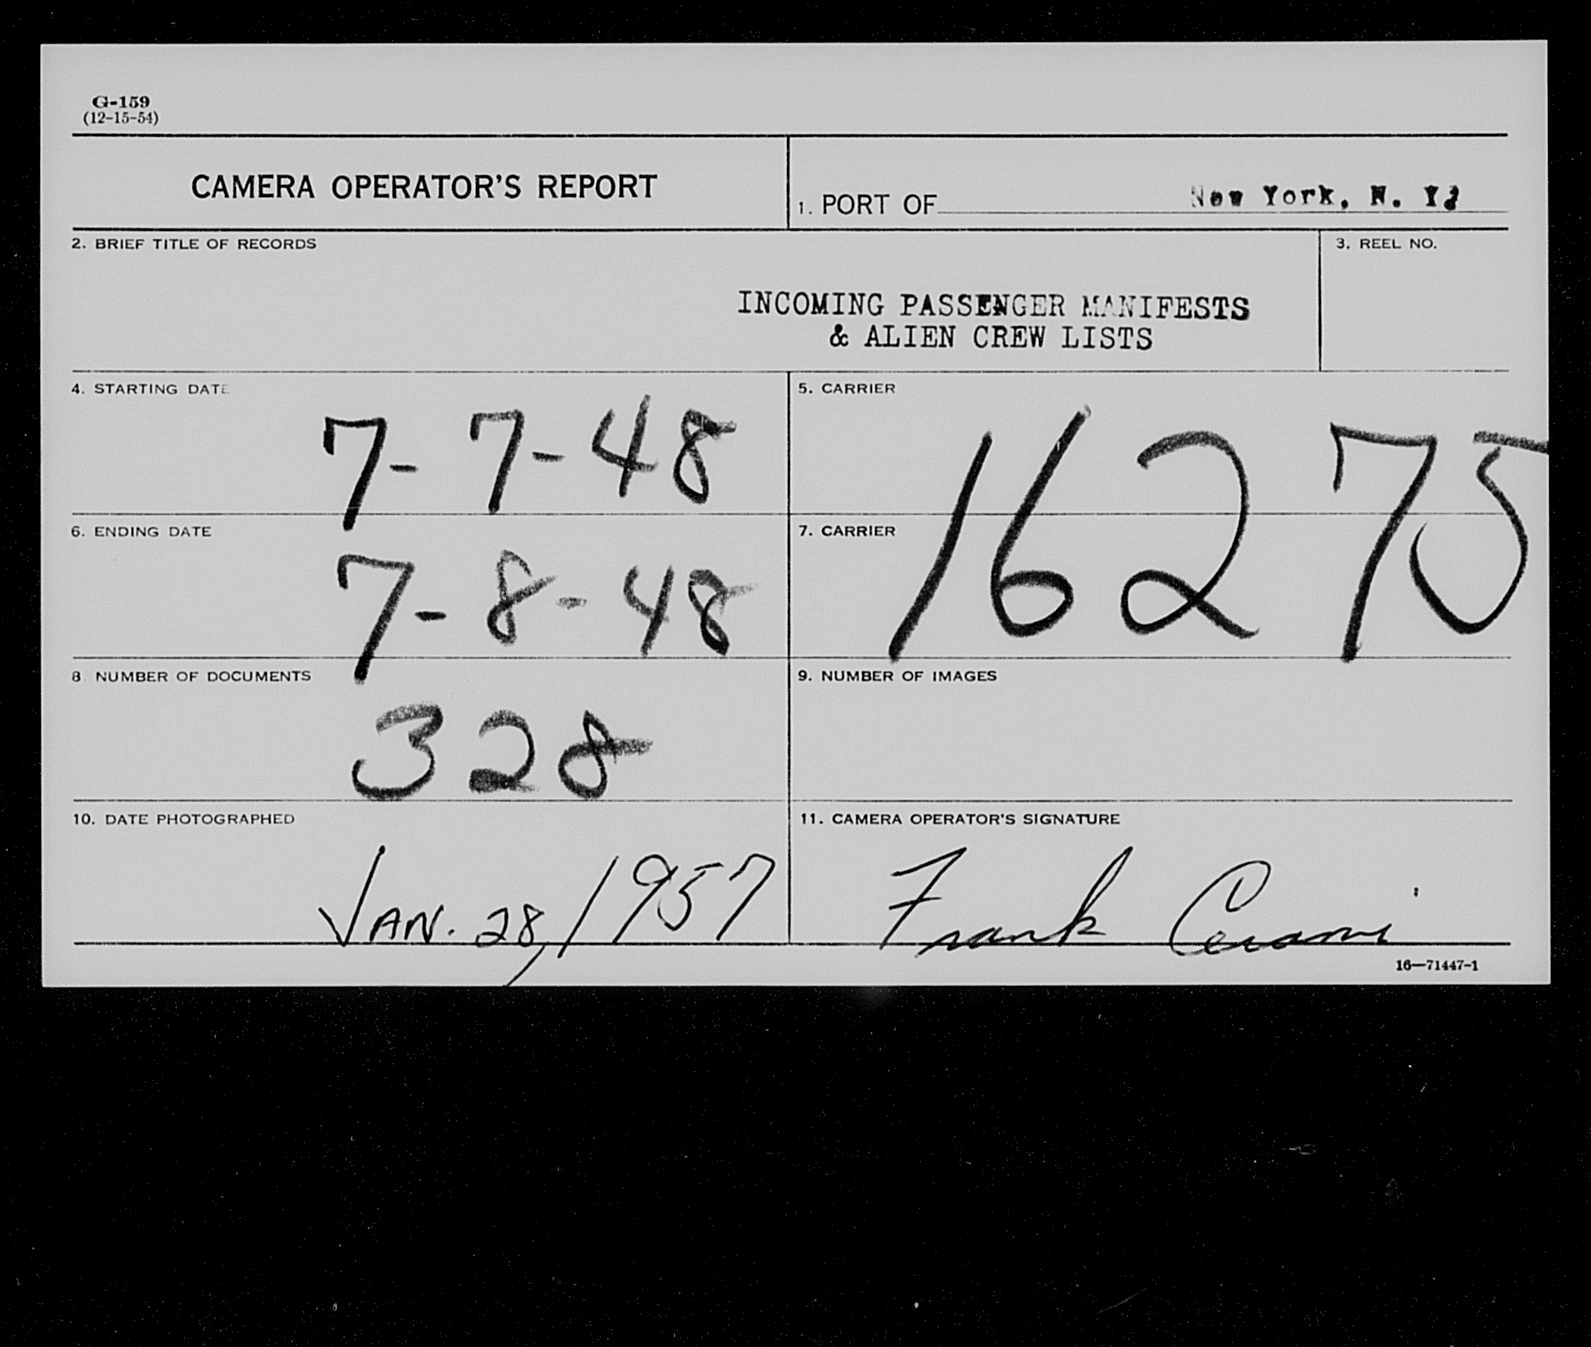 G-159
(12-15-54)
CAMERA OPERATOR'S REPORT
1. PORT OF New York, N. Y.
2. BRIEF TITLE OF RECORDS
3. REEL NO.
INCOMING PASSENGER MANIFESTS
& ALIEN CREW LISTS
4. STARTING DATE
7-7-48
5. CARRIER
16275
6. ENDING DATE
7-8-48
7. CARRIER
8 NUMBER OF DOCUMENTS
328
9. NUMBER OF IMAGES
10. DATE PHOTOGRAPHED
JAN. 28, 1957
11. CAMERA OPERATOR'S SIGNATURE
Frank Cerami
16—71447-1